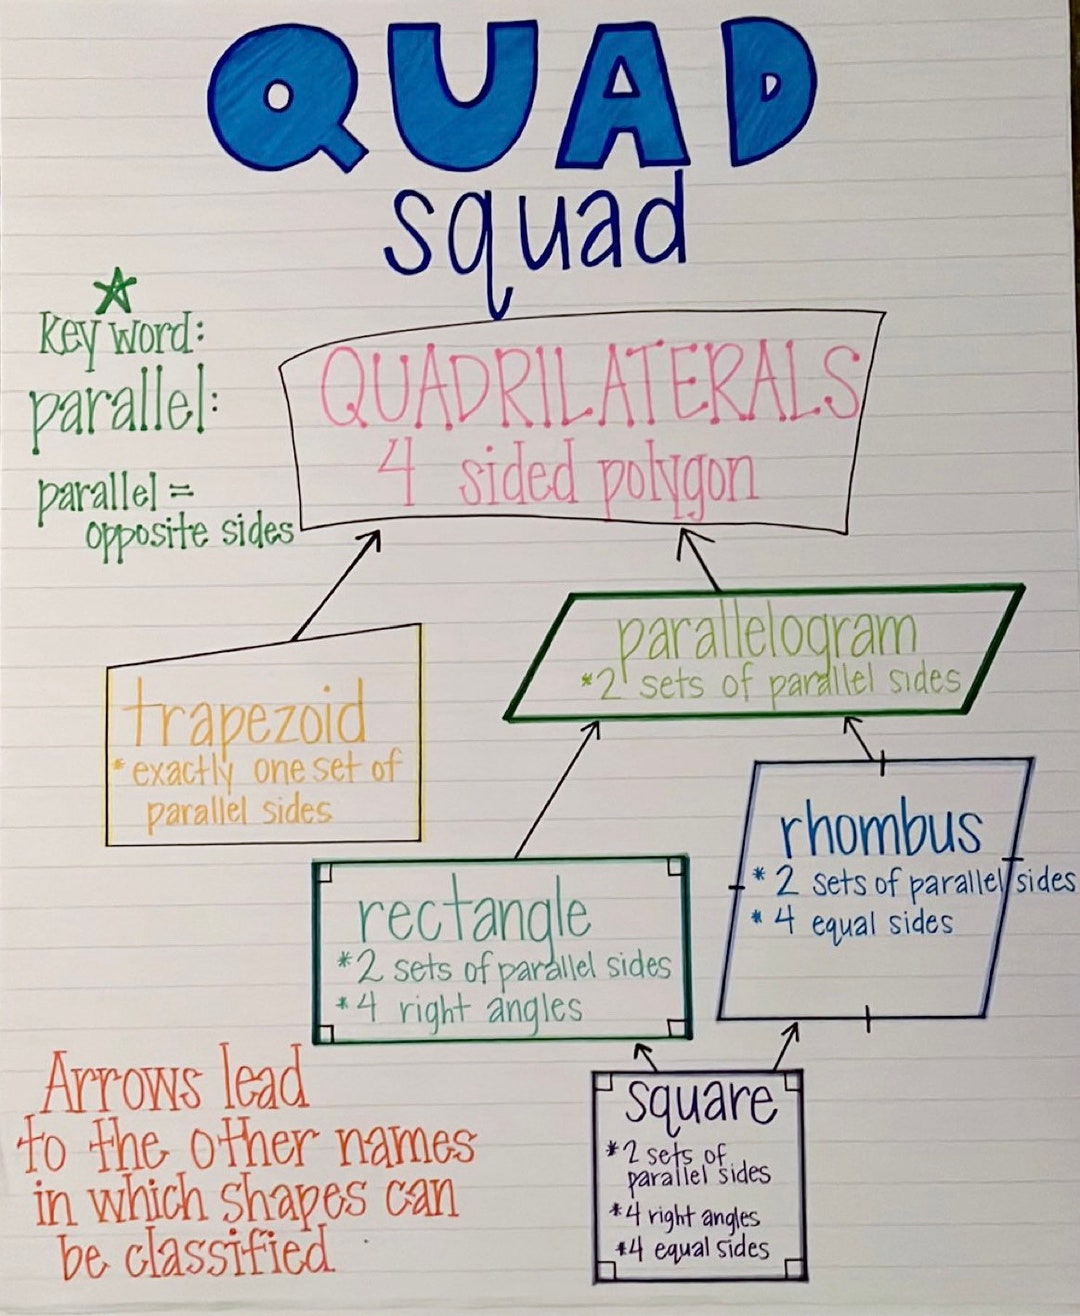 QUAD
squad
Key word:
parallel:
parallel =
opposite sides
QUADRILATERALS
4 sided polygon
trapezoid
* exactly one set of
parallel sides
parallelogram
*2 sets of parallel sides
rectangle
*2 sets of parallel sides
*4 right angles
rhombus
* 2 sets of parallel sides
* 4 equal sides
square
*2 sets of
parallel sides
*4 right angles
*4 equal sides
Arrows lead
to the other names
in which shapes can
be classified.